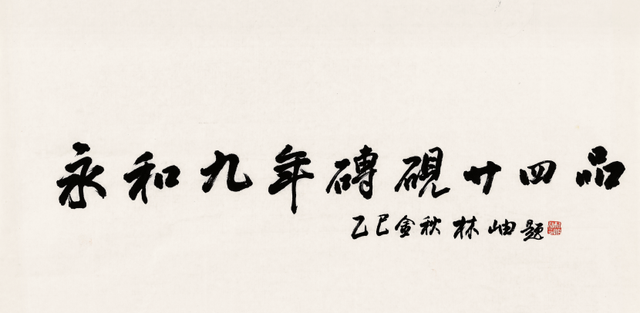 永和九年磚硯廿四品
乙巳金秋 林岫題